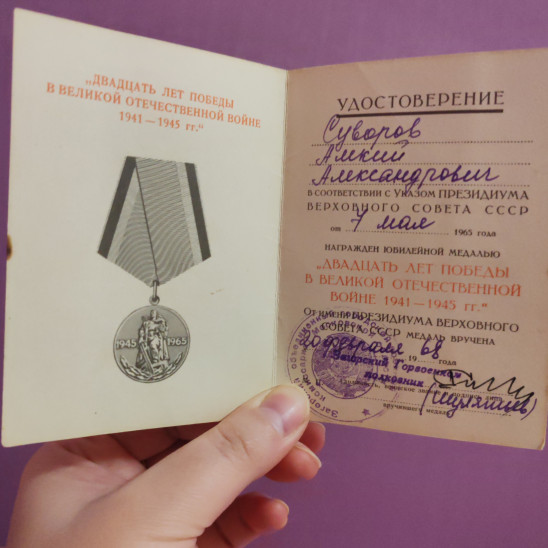 „ДВАДЦАТЬ ЛЕТ ПОБЕДЫ
В ВЕЛИКОЙ ОТЕЧЕСТВЕННОЙ ВОЙНЕ
1941 — 1945 гг."
1945 1965
УДОСТОВЕРЕНИЕ
Суворов
Алкий
Александрович
В СООТВЕТСТВИИ С УКАЗОМ ПРЕЗИДИУМА
ВЕРХОВНОГО СОВЕТА СССР
от 7 мая 1965 года
НАГРАЖДЕН ЮБИЛЕЙНОЙ МЕДАЛЬЮ
„ДВАДЦАТЬ ЛЕТ ПОБЕДЫ
В ВЕЛИКОЙ ОТЕЧЕСТВЕННОЙ
ВОЙНЕ 1941—1945 гг."
От имени ПРЕЗИДИУМА ВЕРХОВНОГО
СОВЕТА СССР МЕДАЛЬ ВРУЧЕНА
20 февраля 19 68 года
Загорский Горвоенком
полковник
вручившего медаль